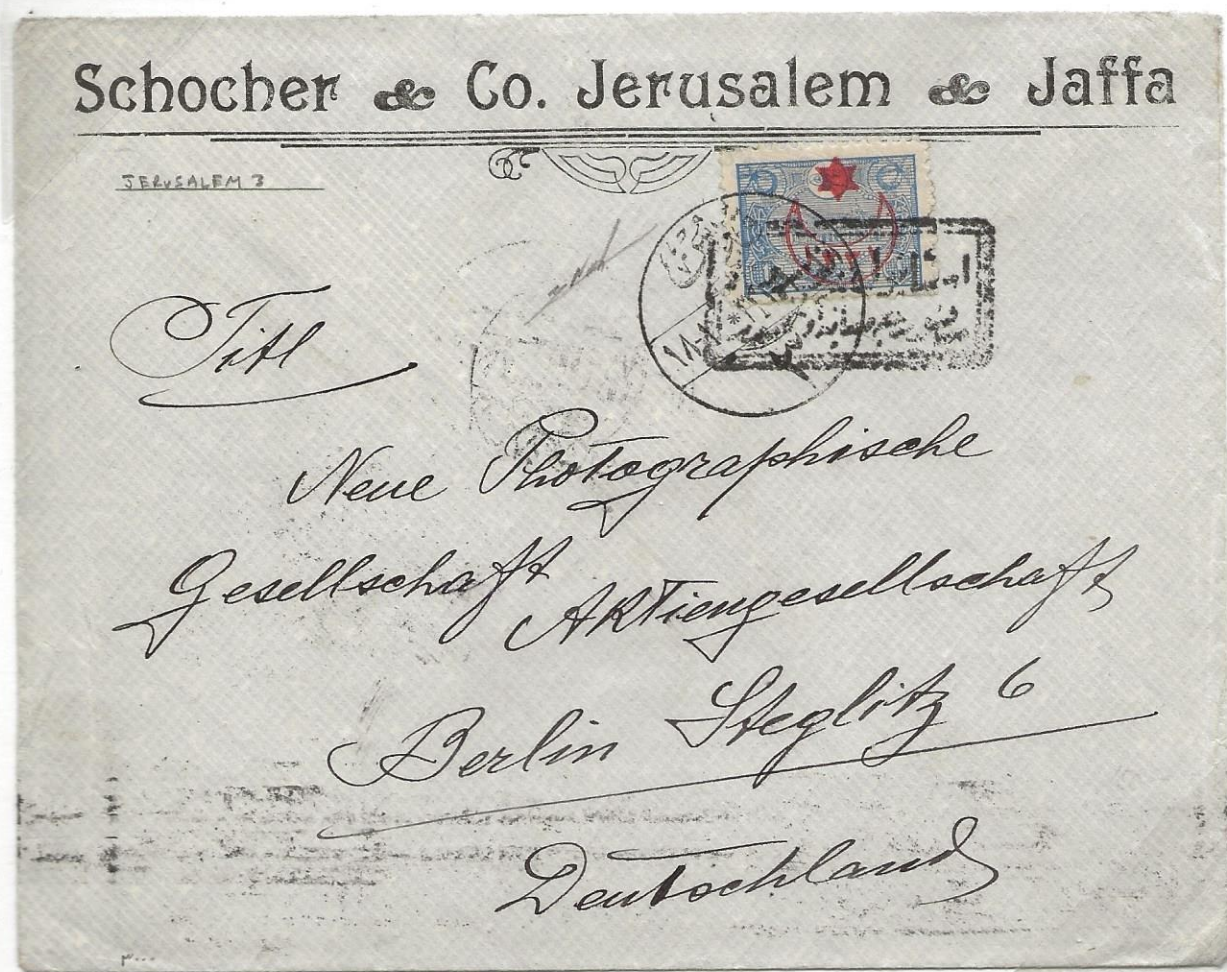 Schocher & Co. Jerusalem & Jaffa
JERUSALEM 3
Titl
Neue Photographische
Gesellschaft Aktiengesellschaft
Berlin Steglitz 6
Deutschland